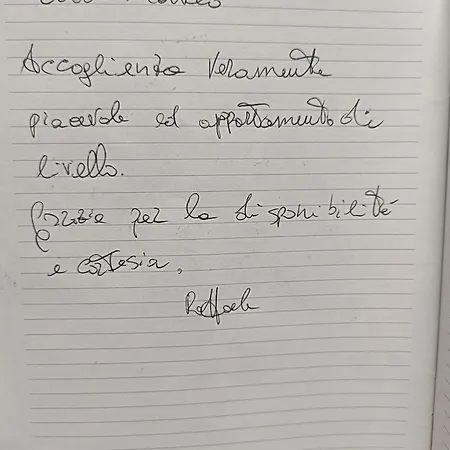 Accoglienza veramente
piacevole ed appartamento di
livello.
Grazie per la disponibilità
e cortesia.
Raffaele